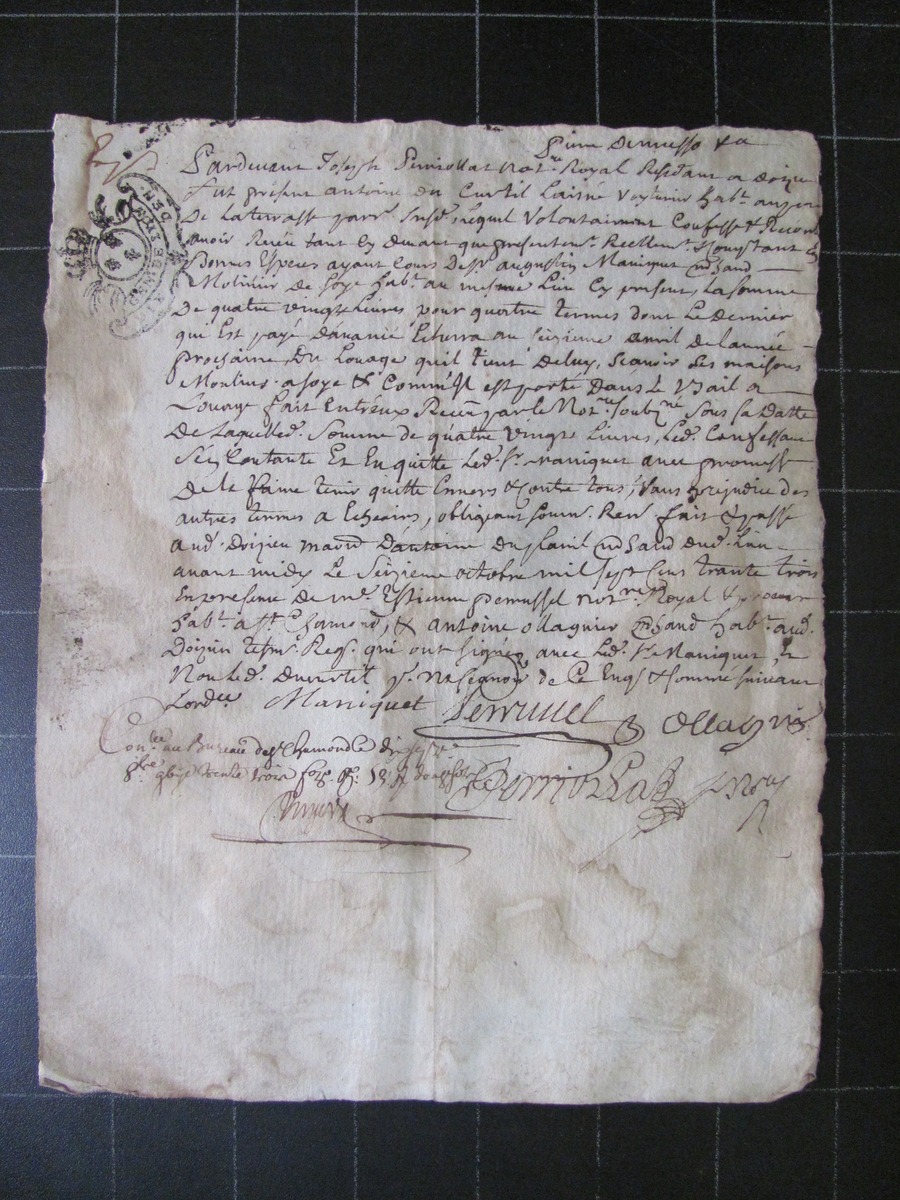 Pardevant Joseph Perriollat Not.re Royal Residant a doizieu
fut présent antoine du Curtil Laisné Voyturier hab.t au
De Laterrasse parr. susd. lequel Volontairement Confesse &
avoir Receu tant cy devant que présentem.t Reellem.t
Bonnes Especes ayant Cours De Sr augustin Maniquet mchand
Molinier de soye hab.t au mesme Lieu Cy present, La somme
De quatre vingts Livres pour quatre termes dont Le dernier
qui Est payé d'avance Echerra au seizieme avril de Lannée
prochaine Du Louage quil tient deluy, scavoir des maisons
Moulins a soye & Comm'Il est porté dans Le Bail a
Louage fait Entr'eux Receu par le Not.re soubs.né sous sa Datte
De Laquelle d. somme de quatre vingts Livres, Led. Confessant
se Contante Et En quitte Led. Sr. Maniquet avec promesse
de le faire tenir quitte Envers & contre tous, sans prejudice des
autres termes a Echeoirs, obligeant soum. Ren. fait & passé
aud. doizieu maison d'antoine Duplain mchand dud. Lieu
avant midy Le seizieme octobre mil sept Cens trante trois
En presence de me Estienne pemussel not.re Royal & procur
hab.t a St Chamond, & antoine ollagnier mchand hab.t aud.
Doizieu tesm. Req. qui ont signés avec Led. Sr Maniquet, et
Non Led. Ducurtil p. ne scavoir de Ce Enq. & sommé suivant
Lord.ce Maniquet Pemussel Ollagnier
Con.lée au Bureau de St chamond Le
8bre trente trois
Perriollat No.re